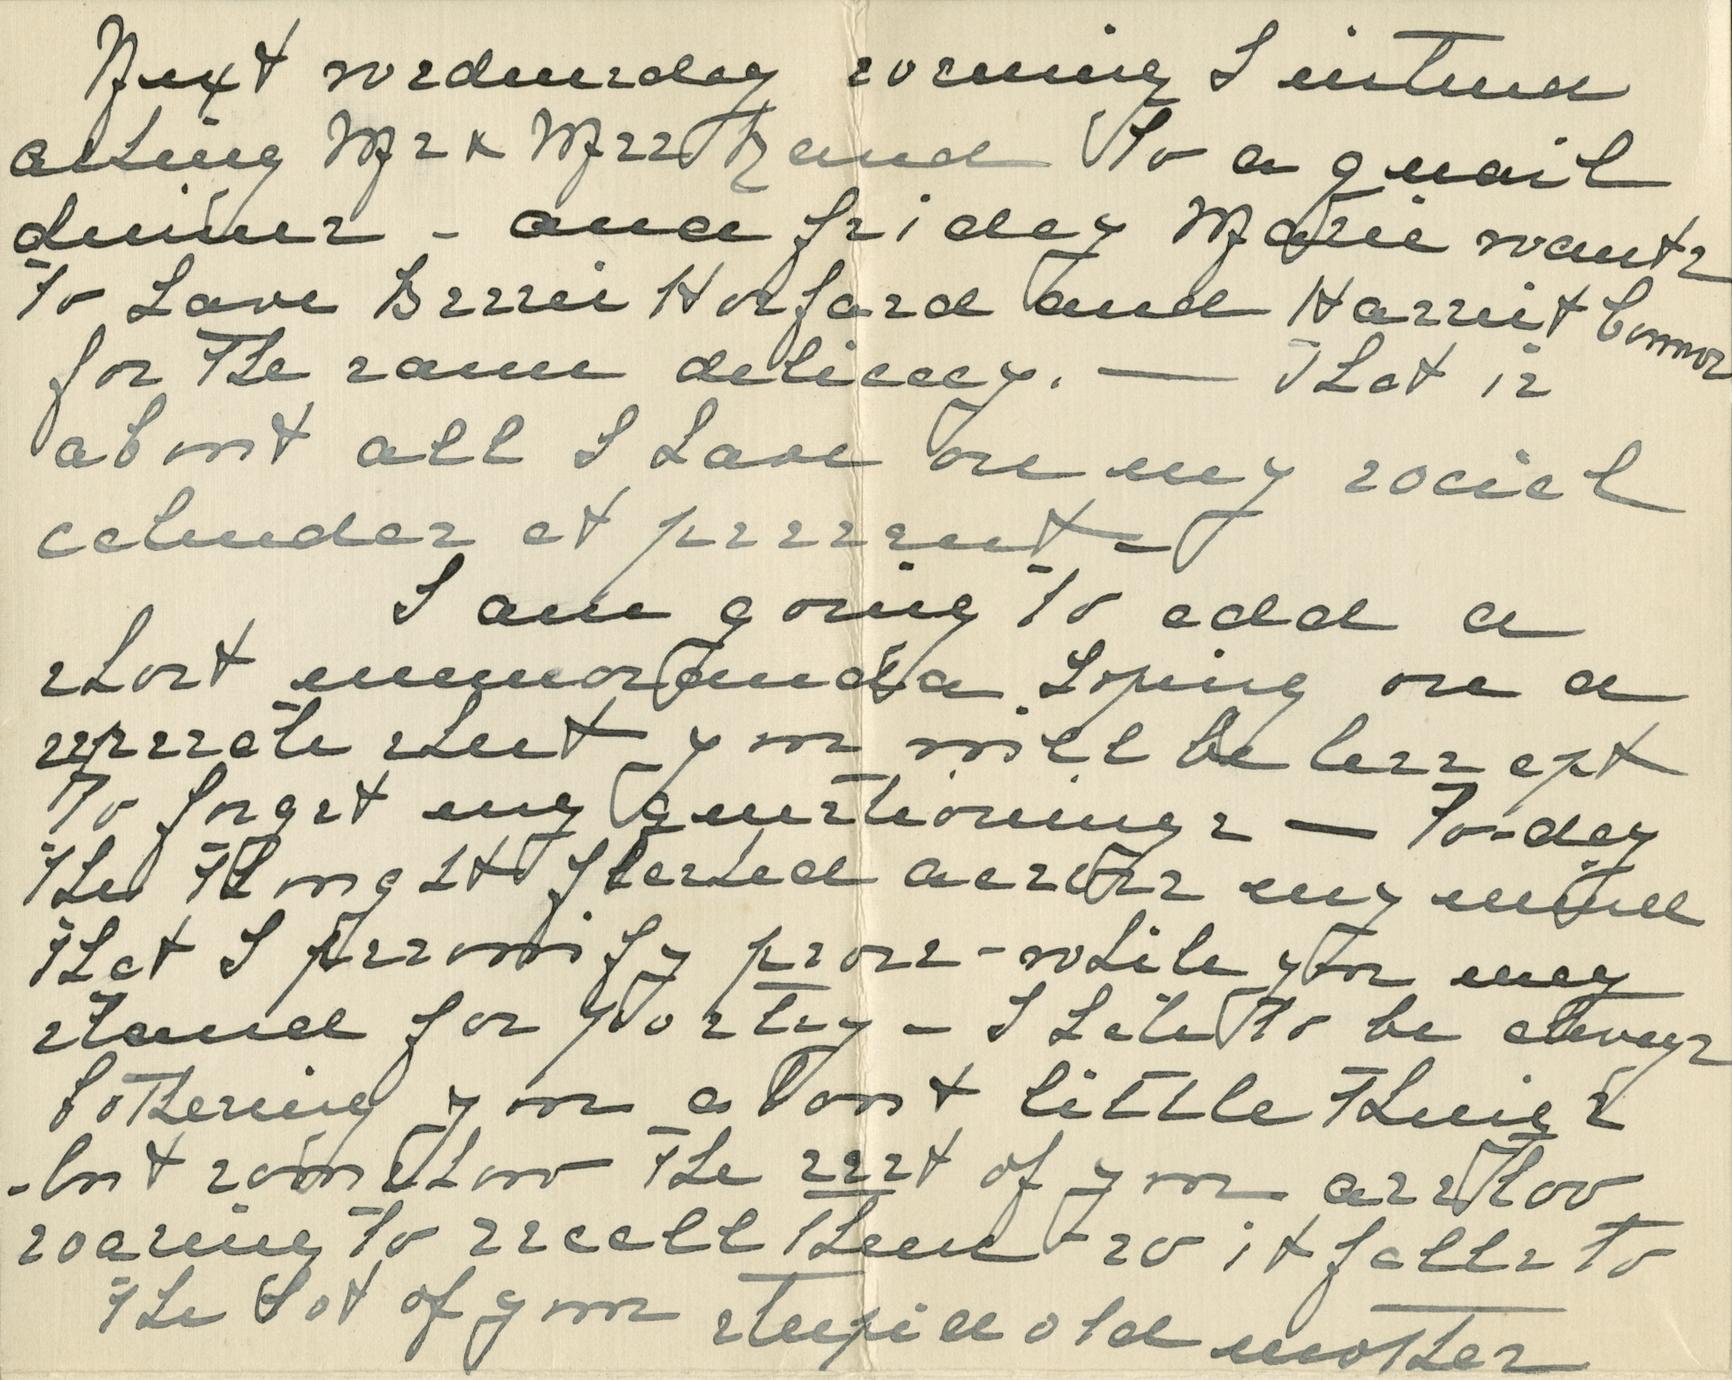 Next wednesday evening I intend
asking Mr & Mrs Rand to a quail
dinner - and friday Marie wants
to have Bessie Hosford and Harriet Connor
for the same delicacy. — That is
about all I have on my social
calendar at present -
I am going to add a
short memoranda hoping on a
seperate sheet you will be less apt
to forget my questionings — To-day
the thought flashed across my mind
that I personify prose - while you may
stand for poetry - I hate to be always
bothering you about little things
- but somehow the rest of you are too
soaring to recall them - so it falls to
the lot of your stupid old mother